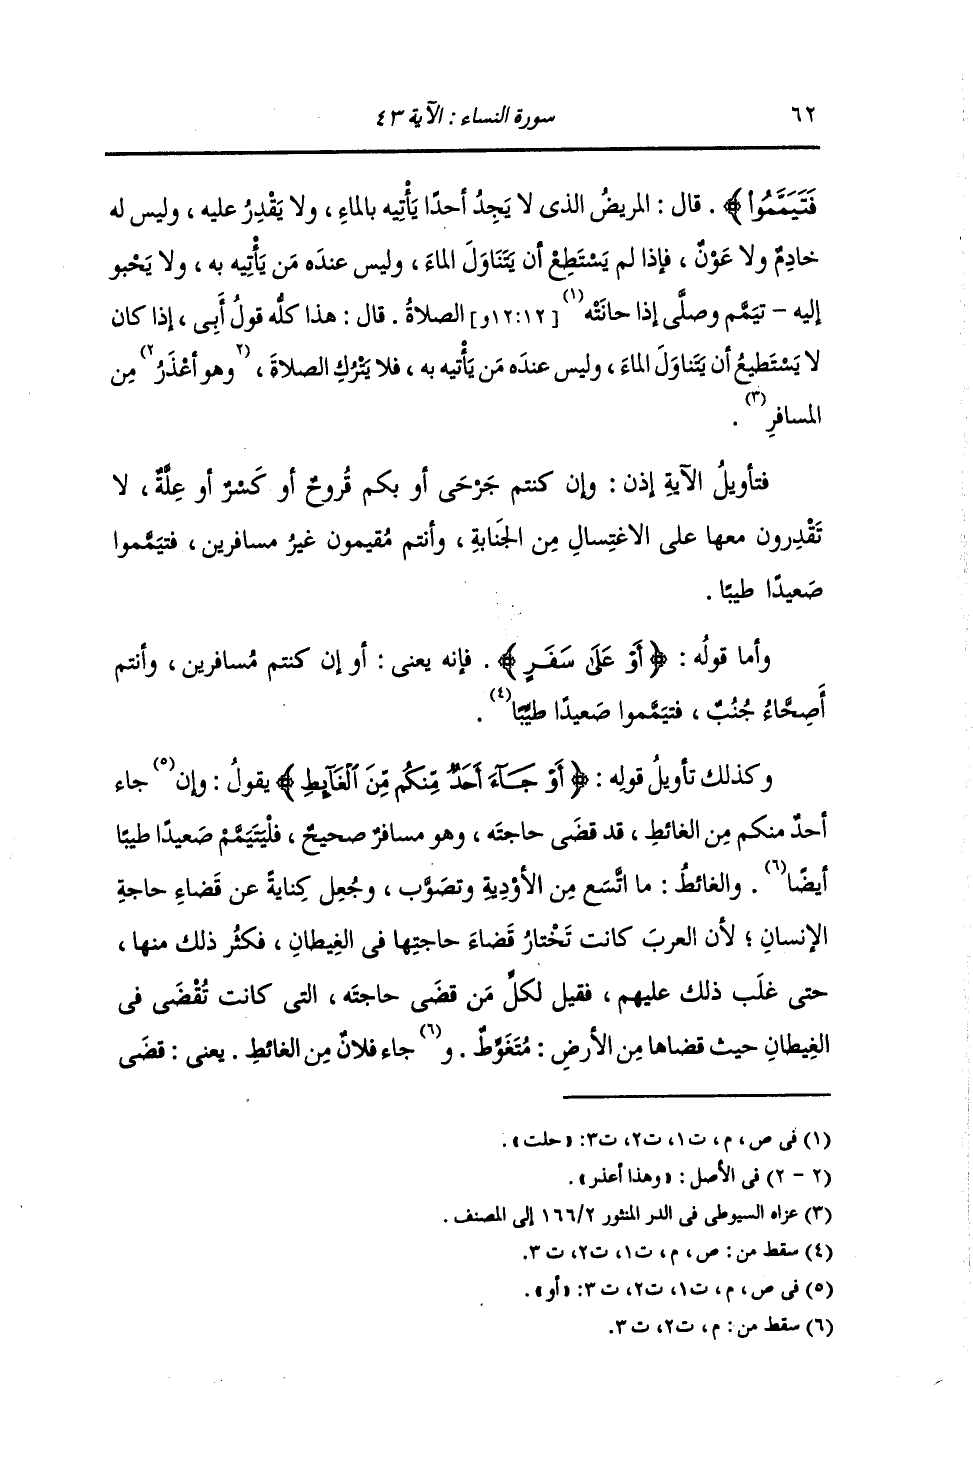 ٦٢ سورة النساء : الآية ٤٣
فَتَيَمَّمُوا ﴾ . قال : المريضُ الذى لا يَجِدُ أحدًا يَأْتِيه بالماءِ ، ولا يَقْدِرُ عليه ، وليس له
خادِمٌ ولا عَوْنٌ ، فإذا لم يَسْتَطِعْ أن يَتَنَاوَلَ الماءَ ، وليس عندَه مَن يَأْتِيه به ، ولا يَحْبو
إليه – تيَمَّم وصلَّى إذا حانَتْه(١) [١٢:١٢و] الصلاةُ . قال : هذا كلُّه قولُ أَبِى ، إذا كان
لا يَسْتَطيعُ أن يَتَناوَلَ الماءَ ، وليس عندَه مَن يَأْتيه به ، فلا يَتْرُكِ الصلاةَ ، (٢وهو أعْذَرُ٢) مِن
المسافرِ(٣) .
فتأويلُ الآيةِ إذن : وإن كنتم جَرْحَى أو بكم قُروحٌ أو كَسْرٌ أو عِلَّةٌ ، لا
تَقْدِرون معها على الاغتِسالِ مِن الجَنابةِ ، وأنتم مُقيمون غيرُ مسافرين ، فتيَمَّموا
صَعيدًا طيبًا .
وأما قولُه : ﴿ أَوْ عَلَىٰ سَفَرٍ ﴾ . فإنه يعنى : أو إن كنتم مُسافرين ، وأنتم
أَصِحَّاءُ جُنُبٌ ، فتيَمَّموا صَعيدًا طيِّبًا(٤) .
وكذلك تأويلُ قولِه : ﴿ أَوْ جَآءَ أَحَدٌ مِّنكُم مِّنَ ٱلْغَآئِطِ ﴾ يقولُ : وإن(٥) جاء
أحدٌ منكم مِن الغائطِ ، قد قضَى حاجتَه ، وهو مسافرٌ صحيحٌ ، فلْيَتَيَمَّمْ صَعيدًا طيبًا
أيضًا(٦) . والغائطُ : ما اتَّسَع مِن الأوْدِيةِ وتصَوَّب ، وجُعِل كِنايةً عن قَضاءِ حاجةِ
الإنسانِ ؛ لأن العربَ كانت تَخْتارُ قَضاءَ حاجتِها فى الغِيطانِ ، فكثُر ذلك منها ،
حتى غلَب ذلك عليهم ، فقيل لكلِّ مَن قضَى حاجتَه ، التى كانت تُقْضَى فى
الغِيطانِ حيث قضاها مِن الأرضِ : مُتَغَوِّطٌ . و(٦) جاء فلانٌ مِن الغائطِ . يعنى : قضَى
(١) فى ص ، م ، ت١ ، ت٢ ، ت٣ : « حلت » .
(٢ – ٢) فى الأصل : « وهذا أعذر » .
(٣) عزاه السيوطى فى الدر المنثور ١٦٦/٢ إلى المصنف .
(٤) سقط من : ص ، م ، ت١ ، ت٢ ، ت ٣ .
(٥) فى ص ، م ، ت١ ، ت٢ ، ت ٣ : « أو » .
(٦) سقط من : م ، ت٢ ، ت ٣ .